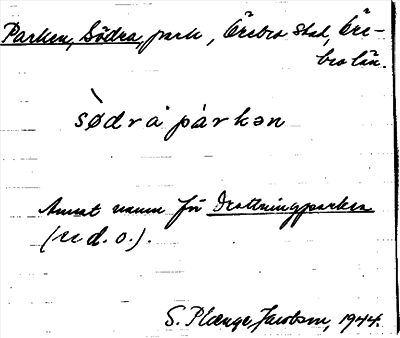 Parken, Södra, park, Örebro stad, Öre-
bro län.
sødra parkən
Annat namn för Drottningparken
(se d. o.).
S. Plænge Jacobson, 1944.